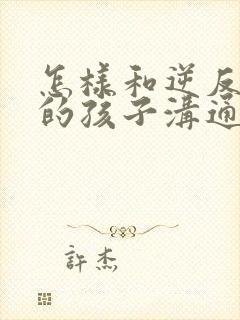 怎樣和逆反
的孩子溝通
許杰